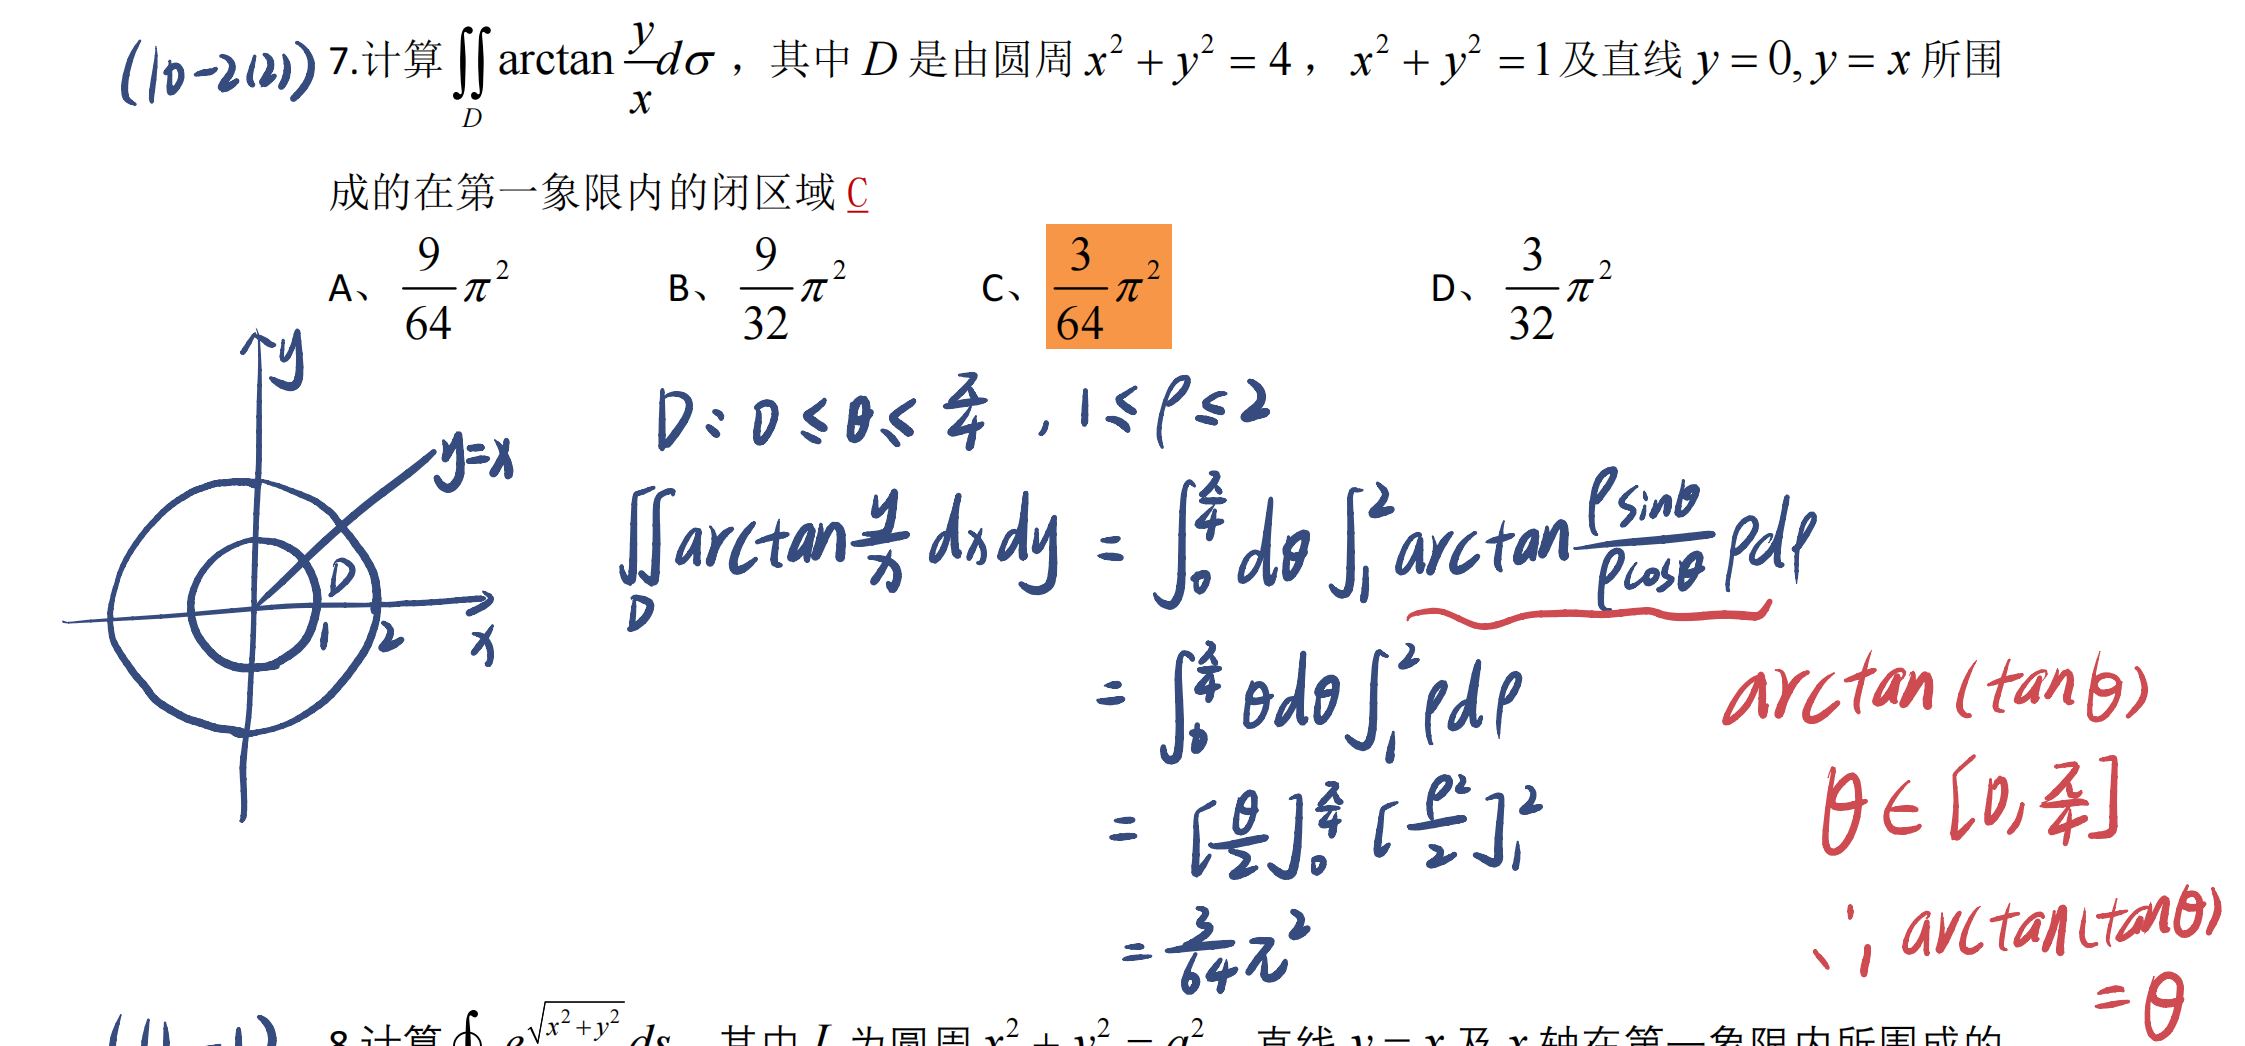 (10-2(2)) 7.计算 ∬_D arctan y/x dσ ，其中 D 是由圆周 x² + y² = 4 ， x² + y² = 1 及直线 y = 0, y = x 所围
成的在第一象限内的闭区域 C
A、 9/64 π² B、 9/32 π² C、 3/64 π² D、 3/32 π²
y
D: 0 ≤ θ ≤ π/4 , 1 ≤ ρ ≤ 2
y=x
∬_D arctan y/x dxdy = ∫_0^{π/4} dθ ∫_1^2 arctan ρsinθ/ρcosθ ρdρ
D
1 2 x
= ∫_0^{π/4} θdθ ∫_1^2 ρdρ
arctan(tanθ)
θ ∈ [0, π/4]
= [θ/2]_0^{π/4} [ρ²/2]_1^2
∴ arctan(tanθ)
= θ
= 3/64 π²
8.计算 ∮ e^{√(x²+y²)} ds 其中 L 为圆周 x² + y² = a² 直线 y = x 及 x 轴在第一象限内所围成的